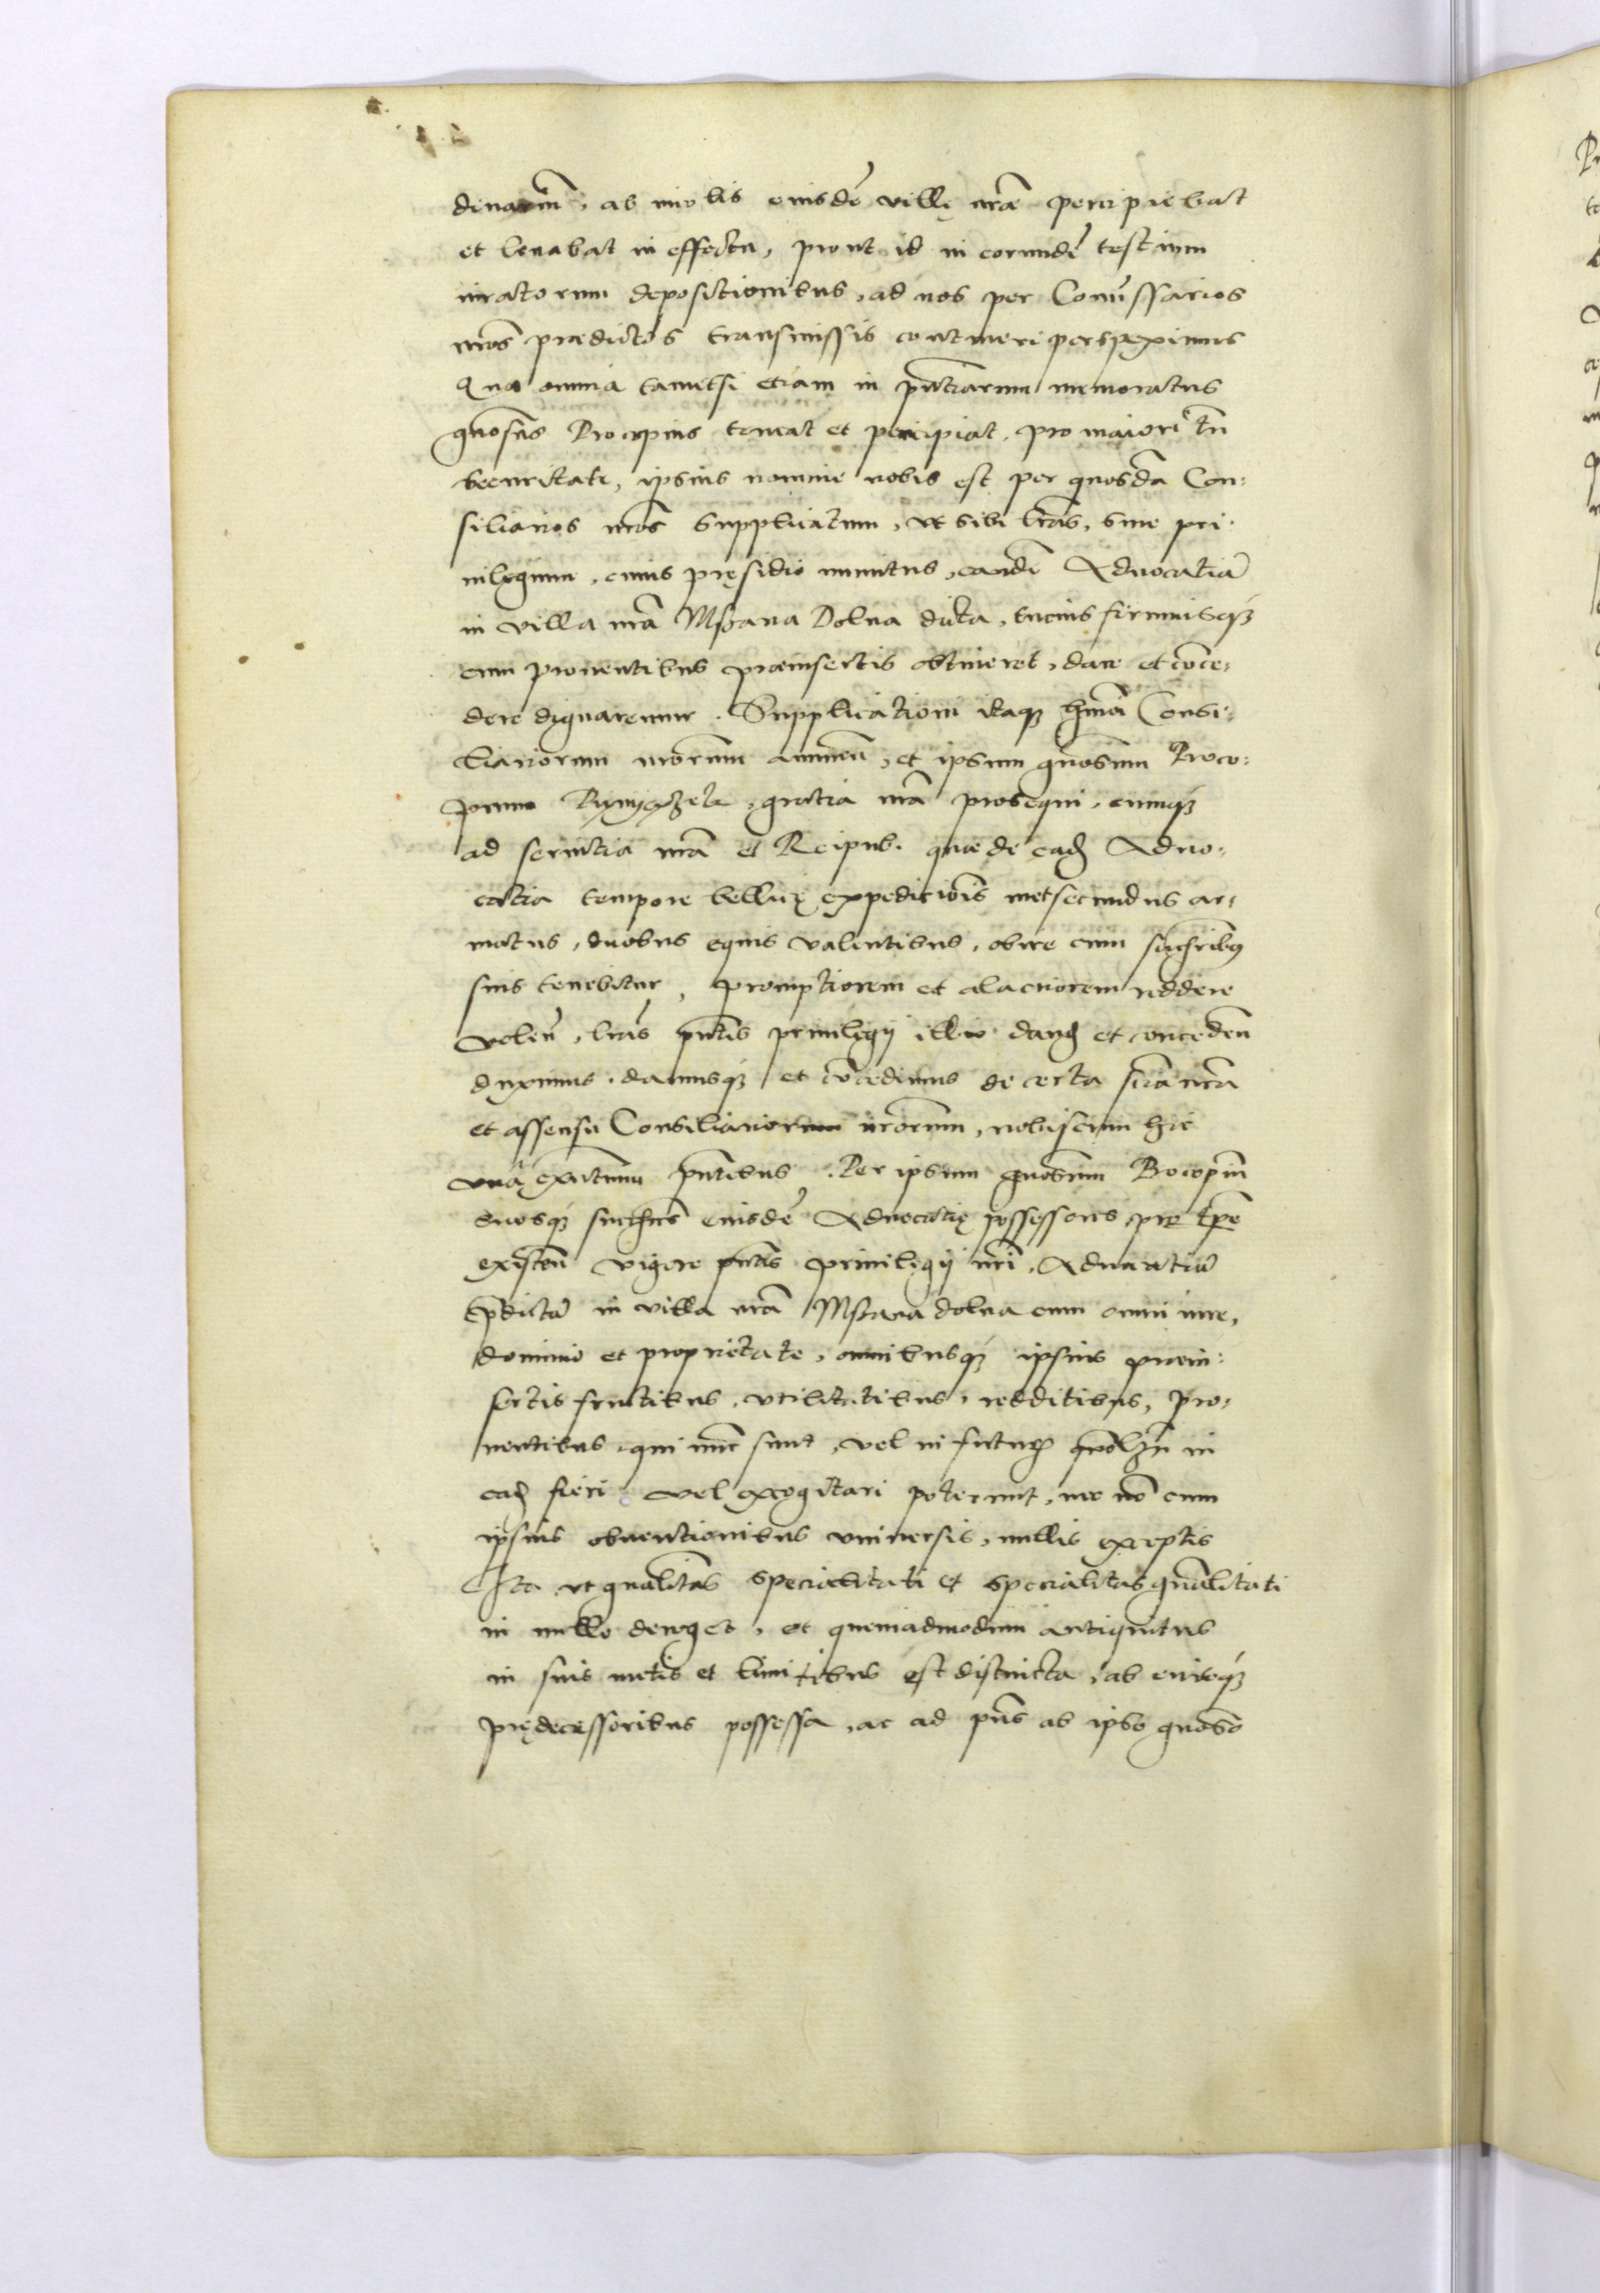 denarium, ab incolis eiusdē villę nrae percipiebat
et levabat in effectu, prout id in eorundē testium
iuratorum depositionibus, ad nos per Comissarios
nros praedictos transmissis contineri perspeximus
Quae omnia tametsi etiam in pntiarum memoratus
gnosus Procopius teneat et percipiat, pro maiori tn̄
securitate, ipsius nomine nobis est per quosdā Con:
siliarios nros supplicatum, ut sibi lras, sive pri:
vilegium, cuius pręsidio munitus, eandē Advocatiā
in villa nra Mssana Dolna dicta, tucius firmiusq́
cum proventibus praeinsertis obtineret, dare et cōce:
dere dignaremur. Supplicationi itaq hmōi Consi:
liariorum nrorum annuen̄, et ipsum gnosum Proco:
pium gratia nra prosequi, eumq́
ad servitia nra et Reipub. quae de eađ Advo:
catia tempore bellicę expeditiōis metsecundus ar:
matus, duobus equis valentibus, obire cum succrib9
suis tenebitur, promptiorem et alacriorem reddere
volen̄, lras pntis privilegij illi danđ et conceden̄
duximus, damusq́ et cōcedimus de certa scīa nra
et assensu Consiliariorum nrorum, nobiscum hic
unà existentium pntibus. Per ipsum gnosum Procopium
suosq́ succres eiusdē Advocatię possessores pro tpe
existen̄ vigore pntis privilegij nri, Advocatiā
pdictā in villa nra Mssana dolna cum omni iure,
dominio et proprietate, omnibusq́ ipsius praein:
sertis fructibus, utilitatibus, redditibus, pro:
ventibus, qui nunc sunt, vel in futurum in
eađ fieri vel excogitari poterunt, nec nō cum
ipsius obventionibus universis, nullis exceptis
Ita ut gnalitas specialitati et specialitas gnalitati
in nullo deroget, et quemadmodum antiquitus
in suis metis et limitibus est distincta, ab eiusq́
pradecessoribus possessa, ac ad pns ab ipso gnoso